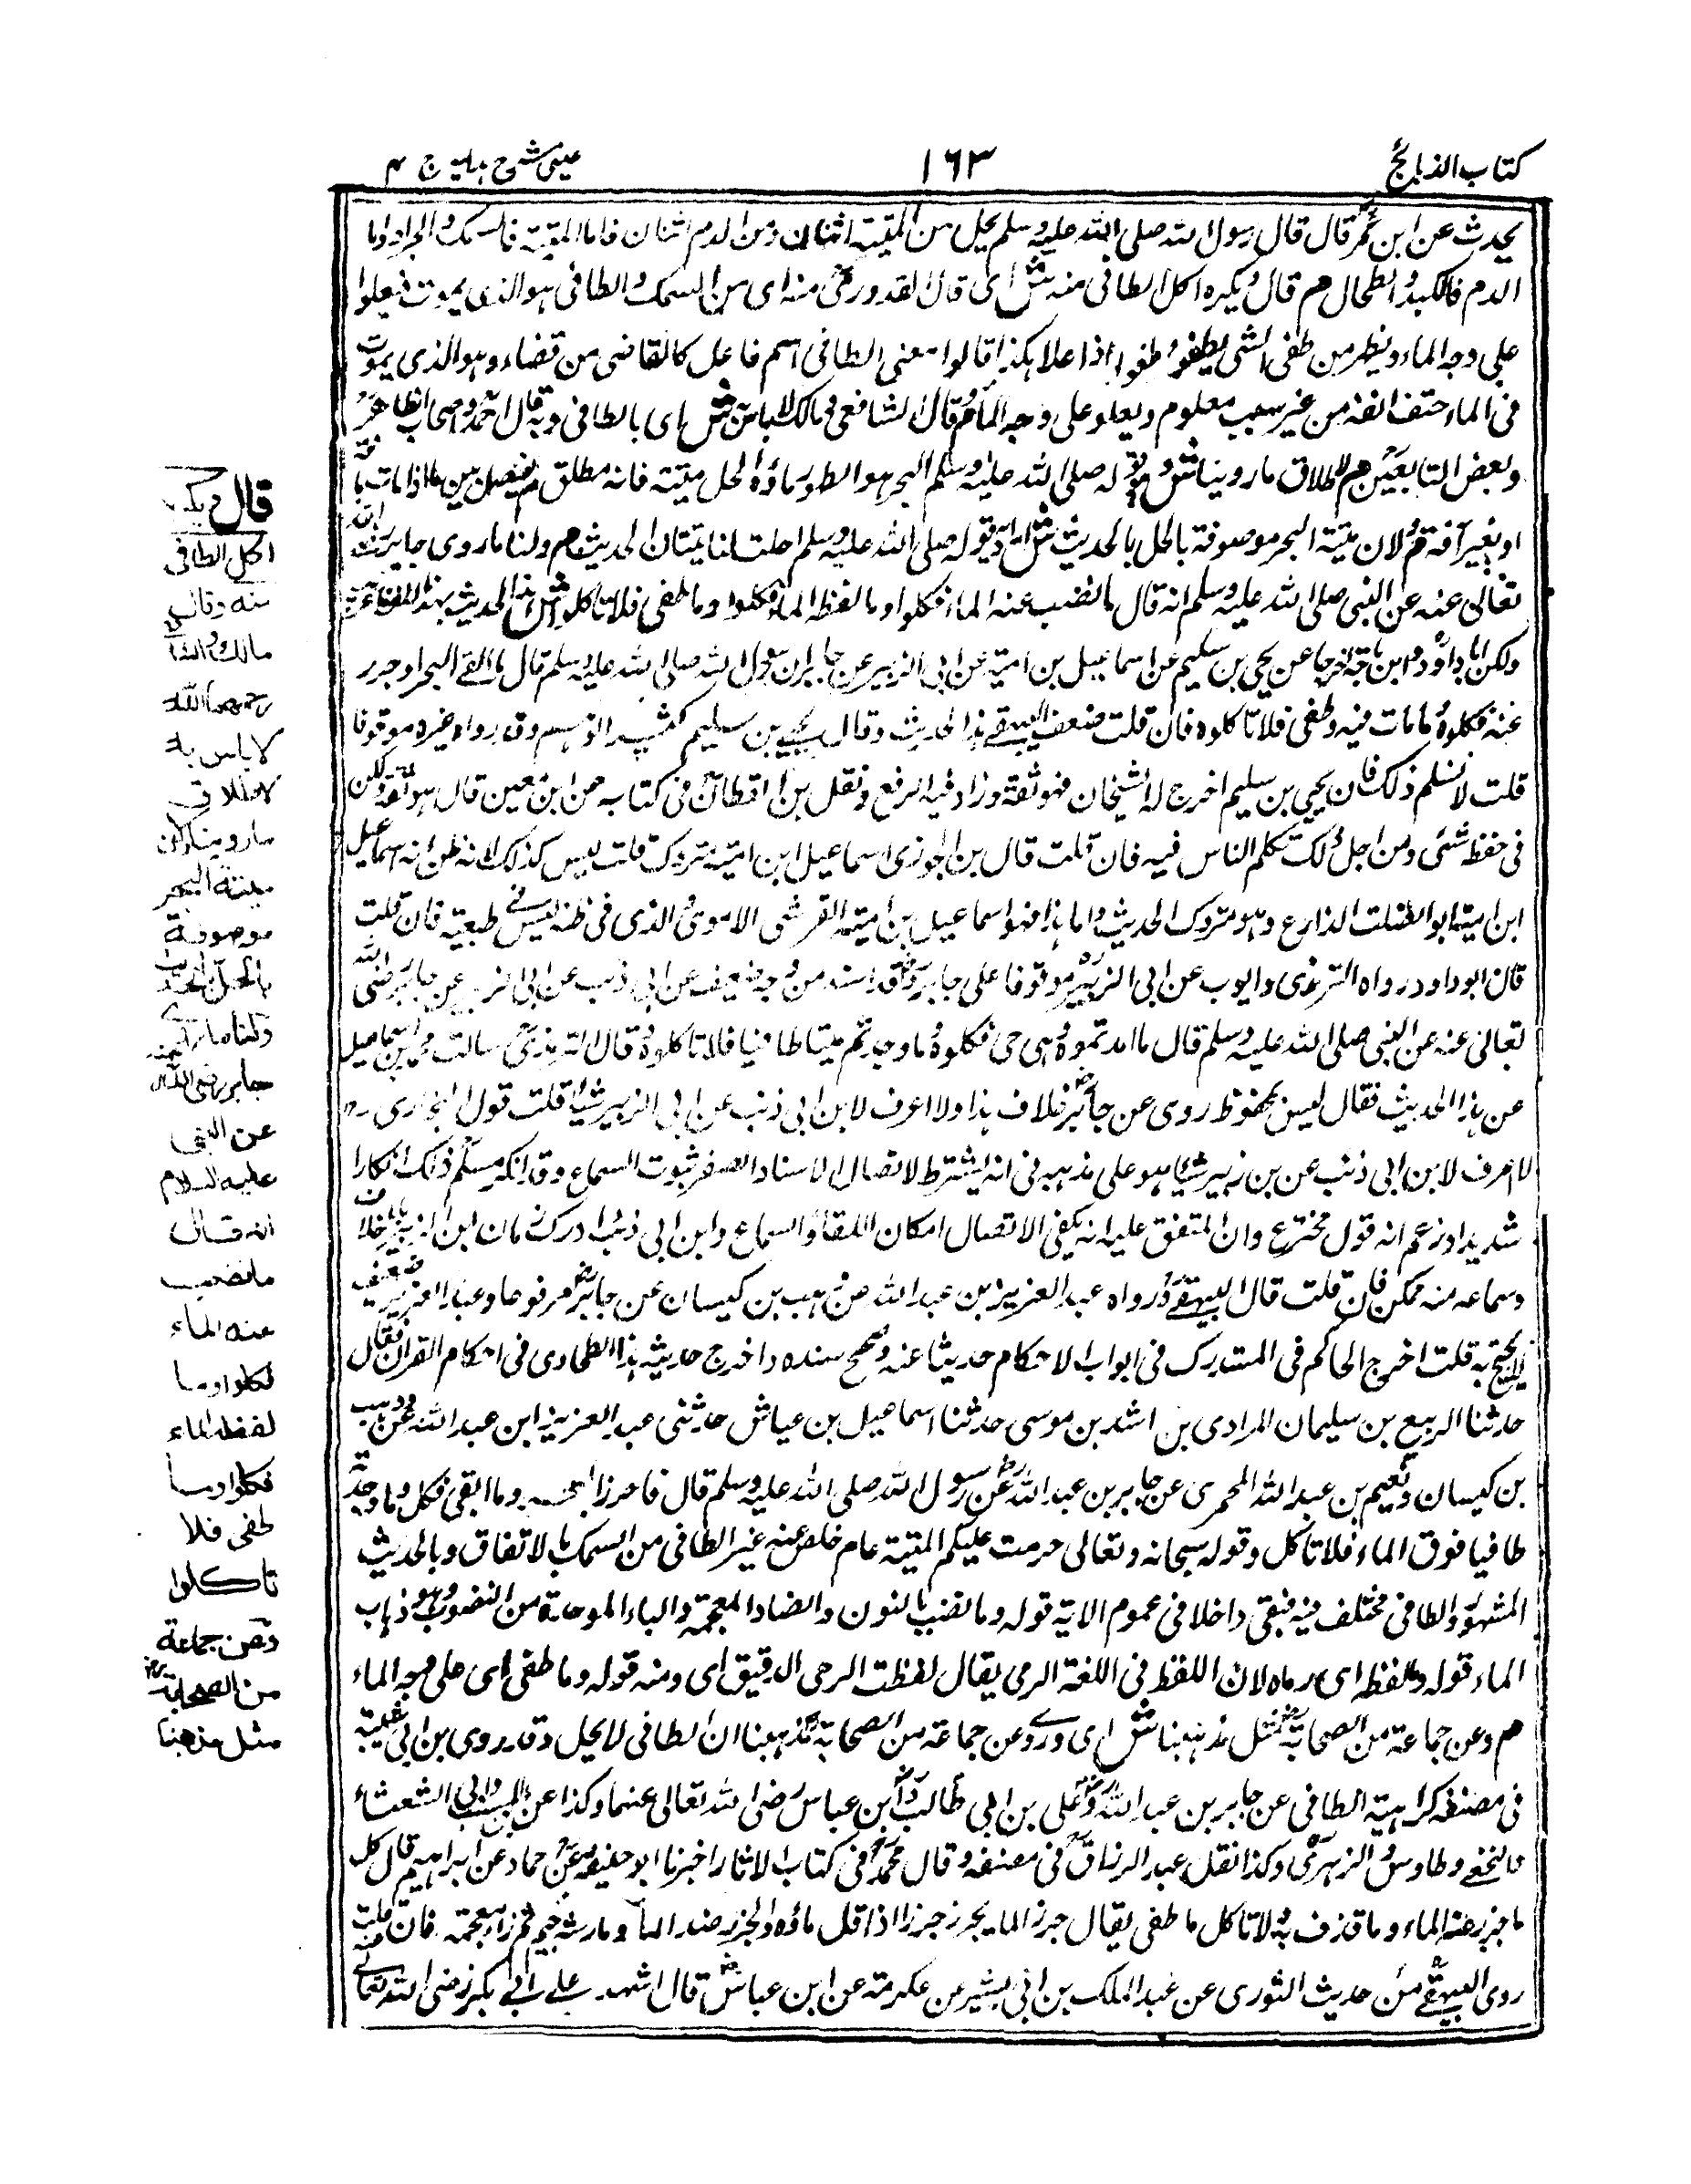 كتاب الذبائح
١٦٣
عينى شرح هدايه ج ٤
يحدث عن ابن عمر قال قال رسول الله صلى الله عليه وسلم يحل من الميتة اثنان ومن الدم اثنان فاما الميتة فالسمك والجراد واما
الدم فالكبد والطحال م قال ويكره اكل الطافى منه ش اى قال القدورى منه اى من السمك والطافى هو الذى يموت فيعلوا
على وجه الماء ويظهر من طفى الشئ يطفو طفوا اذا علا هكذا قالوا معنى الطافى اسم فاعل كالقاضى من قضاء وهو الذى يموت
فى الماء حتف انفه من غير سبب معلوم ويعلو على وجه الماء م وقال الشافعى ومالك لا باس به ش اى بالطافى وبه قال احمد واصحاب الظاهر
وبعض التابعين م لاطلاق ما روينا ش وهو قوله صلى الله عليه وسلم البحر هو الطهور ماؤه الحل ميتته فانه مطلق لم يفصل بين ما اذا مات بآفة
او بغير آفة م ولان ميتة البحر موصوفة بالحل بالحديث ش اى قوله صلى الله عليه وسلم احلت لنا ميتتان الحديث م ولنا ما روى جابر رضى الله
تعالى عنه عن النبى صلى الله عليه وسلم انه قال ما نضب عنه الماء فكلوا وما لفظه الماء فكلوا وما طفى فلا تاكلوا ش هذا الحديث بهذا اللفظ
ولكن ابا داؤد وابن ماجة اخرجا عن يحيى بن سليم عن اسماعيل بن امية عن ابى الزبير عن جابر ان رسول الله صلى الله عليه وسلم قال ما القى البحر او جزر
عنه فكلوه وما مات فيه وطفى فلا تاكلوه فان قلت ضعف البيهقى هذا الحديث وقال يحيى بن سليم كثير الوهم وقد رواه غيره موقوفا
قلت لا نسلم ذلك فان يحيى بن سليم اخرج له الشيخان فهو ثقة وزاد فيه الرفع ونقل بن القطان فى كتابه عن ابن معين قال هو ثقة ولكن
فى حفظه شئ ومن اجل ذلك تكلم الناس فيه فان قلت قال بن الجوزى اسماعيل ابن امية متروك قلت ليس كذلك لانه ظن انه اسماعيل
ابن امية ابو الصلت الذارع وهو متروك الحديث واما هذا فهو اسماعيل بن امية القرشى الاموى والذى فى ظنه ليس فى طبقته فان قلت
قال ابو داود رواه الثورى وايوب عن ابى الزبير موقوفا على جابر وقد اسند من وجه ضعيف عن ابى ذئب عن ابى الزبير عن جابر رضى الله
تعالى عنه عن النبى صلى الله عليه وسلم قال ما اصدتموه وهى حى فكلوه وما وجدتم ميتا طافيا فلا تاكلوه وقال الترمذى سالت محمد بن اسماعيل
عن هذا الحديث فقال ليس بمحفوظ روى عن جابر خلاف هذا ولا اعرف لابن ابى ذئب عن ابى الزبير شيئا قلت قول البخارى
لا اعرف لابن ابى ذئب عن بن زبير شيئا هو على مذهبه فى انه يشترط لاتصال الاسناد المعنعن ثبوت السماع وقد انكر مسلم ذلك انكارا
شديدا وزعم انه قول مخترع وان المتفق عليه انه يكفى الاتصال امكان اللقاء والسماع وابن ابى ذئب ادرك زمان ابن الزبير بلا خلاف
وسماعه منه ممكن فان قلت قال البيهقى ورواه عبد العزيز بن عبد الله عن وهب بن كيسان عن جابر مرفوعا وعبد العزيز ضعيف
لا يحتج به قلت اخرج الحاكم فى المستدرك فى ابواب الاحكام حديثا عنه وصحح سنده واخرج حديثه هذا الطحاوى فى احكام القران فقال
حدثنا الربيع بن سليمان المرادى بن اشد بن موسى حدثنا اسماعيل بن عياش حدثنى عبد العزيز ابن عبد الله عن وهب
بن كيسان ونعيم بن عبد الله المجمرى عن جابر بن عبد الله عن رسول الله صلى الله عليه وسلم قال ما جزر البحر وما القى فكل وما وجدته
طافيا فوق الماء فلا تاكل وقوله سبحانه وتعالى حرمت عليكم الميتة عام خص عنه غير الطافى من السمك بالاتفاق وبالحديث
المشهور والطافى مختلف فيه فبقى داخلا فى عموم الاية قوله وما نضب بالنون والضاد المعجمة والباء الموحدة من النضوب وهو ذهاب
الماء قوله وما لفظه اى رماه لان اللفظ فى اللغة الرمى يقال لفظت الرحى الدقيق اى ومنه قوله وما طفى اى على وجه الماء
م وعن جماعة من الصحابة مثل مذهبنا ش اى وروى عن جماعة من الصحابة مثل مذهبنا ان الطافى لا يحل وقد روى بن ابى شيبة
فى مصنفه كراهية الطافى عن جابر بن عبد الله وعلى بن ابى طالب وابن عباس رضى الله تعالى عنهما وكذا عن ابن المسيب وابى الشعثاء
والنخعى وطاوس والزهرى وكذا نقل عبد الرزاق فى مصنفه وقال محمد فى كتاب الاثار اخبرنا ابو حنيفة عن حماد عن ابراهيم قال كل
ما جزر عنه الماء وما قذف به ولا تاكل ما طفى يقال جزر الماء يجزر جزرا اذا قل ماؤه والجزر ضد المد ومادته جيم ثم زاء معجمة فان قلت
روى البيهقى من حديث الثورى عن عبد الملك بن ابى بشير عن عكرمة عن ابن عباس قال اشهد على ابى بكر رضى الله تعالى عنه
قال ويكره
اكل الطافى
منه وقال
مالك والشافعى
رحمهما الله
لا باس به
لاطلاق
ما روينا ولان
ميتة البحر
موصوفة
بالحل بالحديث
ولنا ما روى
جابر رضى الله عنه
عن النبى
عليه السلام
انه قال
ما نضب
عنه الماء
فكلوا وما
لفظه الماء
فكلوا وما
طفى فلا
تاكلوا
وعن جماعة
من الصحابة
مثل مذهبنا